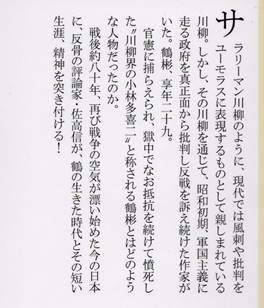 サラリーマン川柳のように、現代では風刺や批判を
ユーモラスに表現するものとして親しまれている
川柳。しかし、その川柳を通じて、昭和初期、軍国主義に
走る政府を真正面から批判し反戦を訴え続けた作家が
いた。鶴彬、享年二十九。
官憲に捕らえられ、獄中でなお抵抗を続けて憤死し
た〝川柳界の小林多喜二〟と称される鶴彬とはどのよう
な人物だったのか。
戦後約八十年、再び戦争の空気が漂い始めた今の日本
に、反骨の評論家・佐高信が、鶴の生きた時代とその短い
生涯、精神を突き付ける!